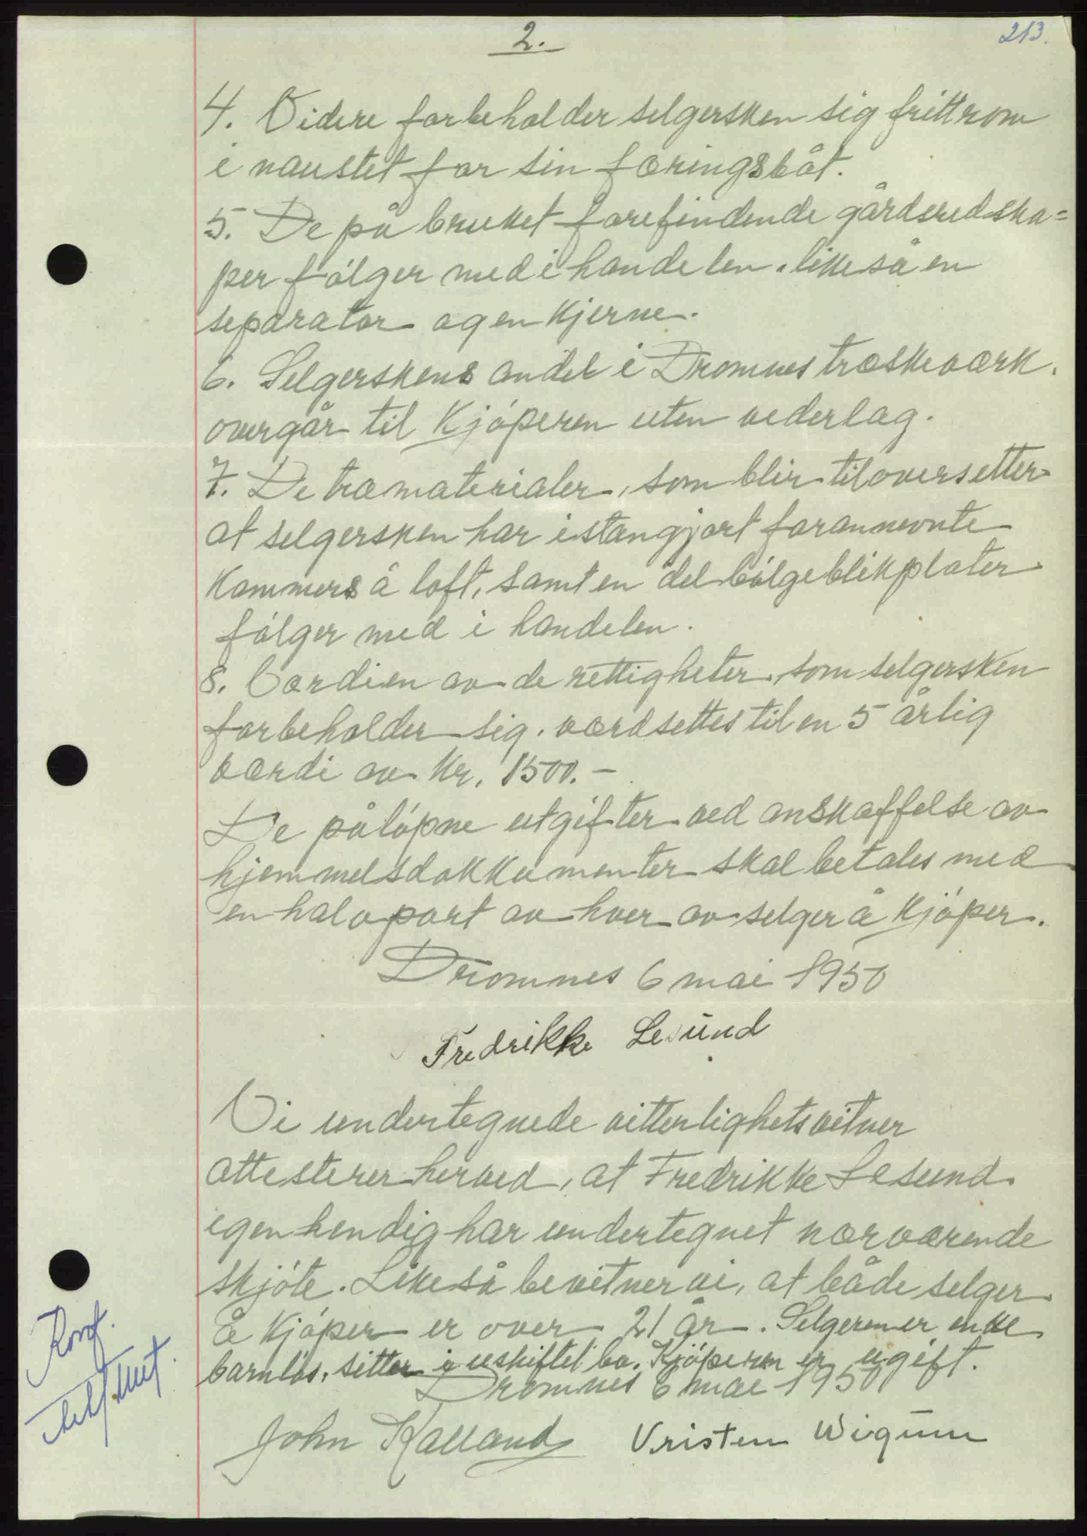 2.
213.
4. Videre forbeholder selgersken sig frittrom
i naustet for sin færingsbåt.
5. De på bruket forefindende gårdsredska=
per følger med i handelen. likeså en
separator og en kjerne.
6. Selgerskens andel i Dromnes træskeværk.
overgår til Kjøperen uten vederlag.
7. De træmaterialer, som blir tilovers etter
at selgersken har istangjort forannevnte
Kammers å loft, samt en del bølgeblikplater
følger med i handelen.
8. Værdien av de rettigheter, som selgersken
forbeholder sig. værdsettes til en 5 årlig
værdi av Kr. 1500.-
De påløpne utgifter ved anskaffelse av
hjemmelsdokkumenter skal betales med
en halvpart av hver av selger å Kjøper.
Dromnes 6 mai 1950
Fredrikke Lesund
Vi undertegnede vitterlighetsvitner
attesterer herved, at Fredrikke Lesund
egenhendig har undertegnet nærværende
skjøte. Likeså bevitner vi, at både selger
å Kjøper er over 21 år. Selgeren er enke
barnløs, sitter i uskiftet bo. Kjøperen er ugift.
Dromnes 6 mai 1950
John Kalland Kristen Wigum
Konf.